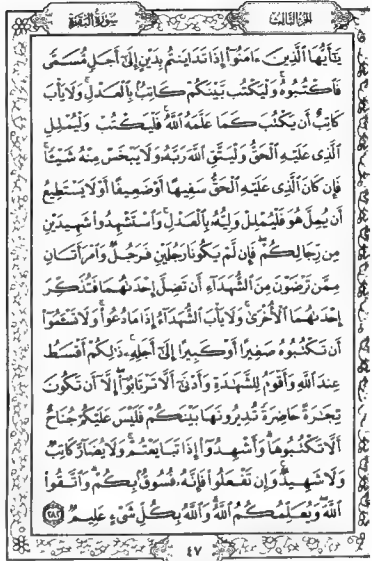 سُورَةُ البَقَرَةِ
الجُزءُ الثَّالِثُ
يَٰٓأَيُّهَا ٱلَّذِينَ ءَامَنُوٓا۟ إِذَا تَدَايَنتُم بِدَيْنٍ إِلَىٰٓ أَجَلٍ مُّسَمًّى
فَٱكْتُبُوهُ ۚ وَلْيَكْتُب بَّيْنَكُمْ كَاتِبٌۢ بِٱلْعَدْلِ ۚ وَلَا يَأْبَ
كَاتِبٌ أَن يَكْتُبَ كَمَا عَلَّمَهُ ٱللَّهُ ۚ فَلْيَكْتُبْ وَلْيُمْلِلِ
ٱلَّذِى عَلَيْهِ ٱلْحَقُّ وَلْيَتَّقِ ٱللَّهَ رَبَّهُۥ وَلَا يَبْخَسْ مِنْهُ شَيْـًٔا ۚ
فَإِن كَانَ ٱلَّذِى عَلَيْهِ ٱلْحَقُّ سَفِيهًا أَوْ ضَعِيفًا أَوْ لَا يَسْتَطِيعُ
أَن يُمِلَّ هُوَ فَلْيُمْلِلْ وَلِيُّهُۥ بِٱلْعَدْلِ ۚ وَٱسْتَشْهِدُوا۟ شَهِيدَيْنِ
مِن رِّجَالِكُمْ ۖ فَإِن لَّمْ يَكُونَا رَجُلَيْنِ فَرَجُلٌ وَٱمْرَأَتَانِ
مِمَّن تَرْضَوْنَ مِنَ ٱلشُّهَدَآءِ أَن تَضِلَّ إِحْدَىٰهُمَا فَتُذَكِّرَ
إِحْدَىٰهُمَا ٱلْأُخْرَىٰ ۚ وَلَا يَأْبَ ٱلشُّهَدَآءُ إِذَا مَا دُعُوا۟ ۚ وَلَا تَسْـَٔمُوٓا۟
أَن تَكْتُبُوهُ صَغِيرًا أَوْ كَبِيرًا إِلَىٰٓ أَجَلِهِۦ ۚ ذَٰلِكُمْ أَقْسَطُ
عِندَ ٱللَّهِ وَأَقْوَمُ لِلشَّهَٰدَةِ وَأَدْنَىٰٓ أَلَّا تَرْتَابُوٓا۟ ۖ إِلَّآ أَن تَكُونَ
تِجَٰرَةً حَاضِرَةً تُدِيرُونَهَا بَيْنَكُمْ فَلَيْسَ عَلَيْكُمْ جُنَاحٌ
أَلَّا تَكْتُبُوهَا ۗ وَأَشْهِدُوٓا۟ إِذَا تَبَايَعْتُمْ ۚ وَلَا يُضَآرَّ كَاتِبٌ
وَلَا شَهِيدٌ ۚ وَإِن تَفْعَلُوا۟ فَإِنَّهُۥ فُسُوقٌۢ بِكُمْ ۗ وَٱتَّقُوا۟
ٱللَّهَ ۖ وَيُعَلِّمُكُمُ ٱللَّهُ ۗ وَٱللَّهُ بِكُلِّ شَىْءٍ عَلِيمٌ ٢٨٢
٤٧